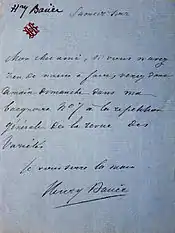 Hy Bauër
Samedi soir
Mon cher ami, si vous n'avez
rien de mieux à faire venez donc
demain dimanche dans ma
baignoire No 7 à la répétition
générale de la revue des
Variétés
Je vous serre la main
Henry Bauër